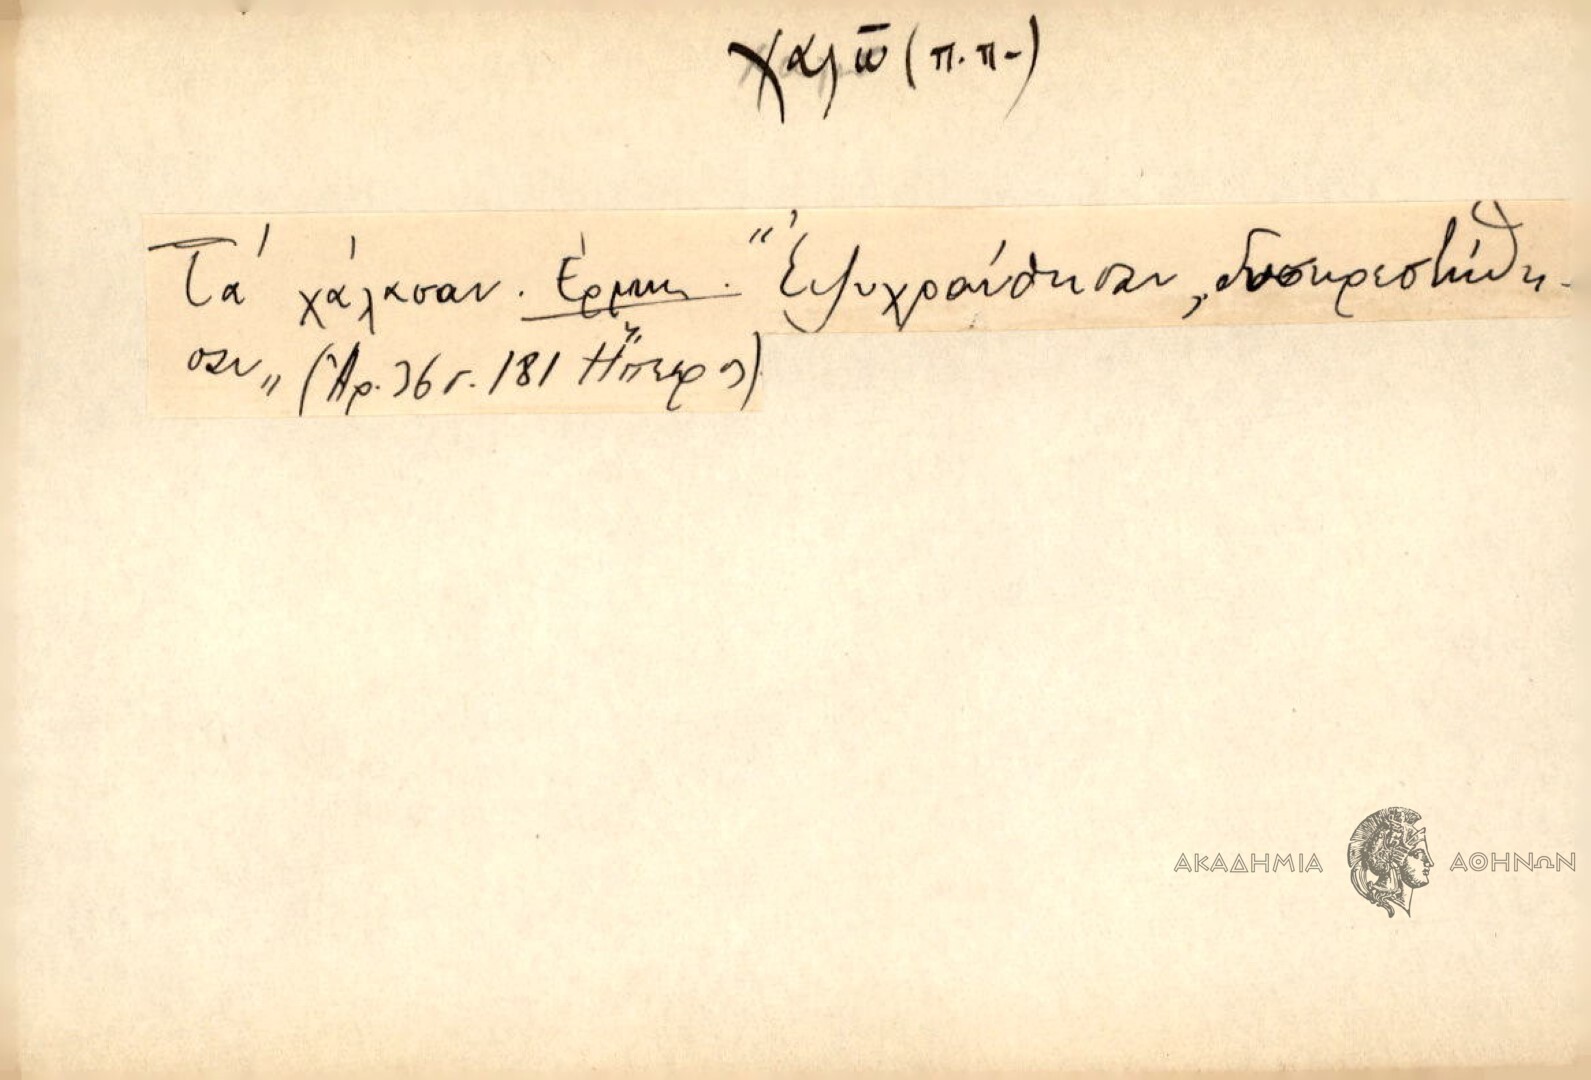 χαλῶ (π.π-)
Τά χάλασαν. Ἑρμην. "Ἐψυχράνθησαν, δυσηρεστήθη-
σαν" (Ἀρ. 36 σ. 181 Ἤπειρος)
ΑΚΑΔΗΜΙΑ ΑΘΗΝΩΝ